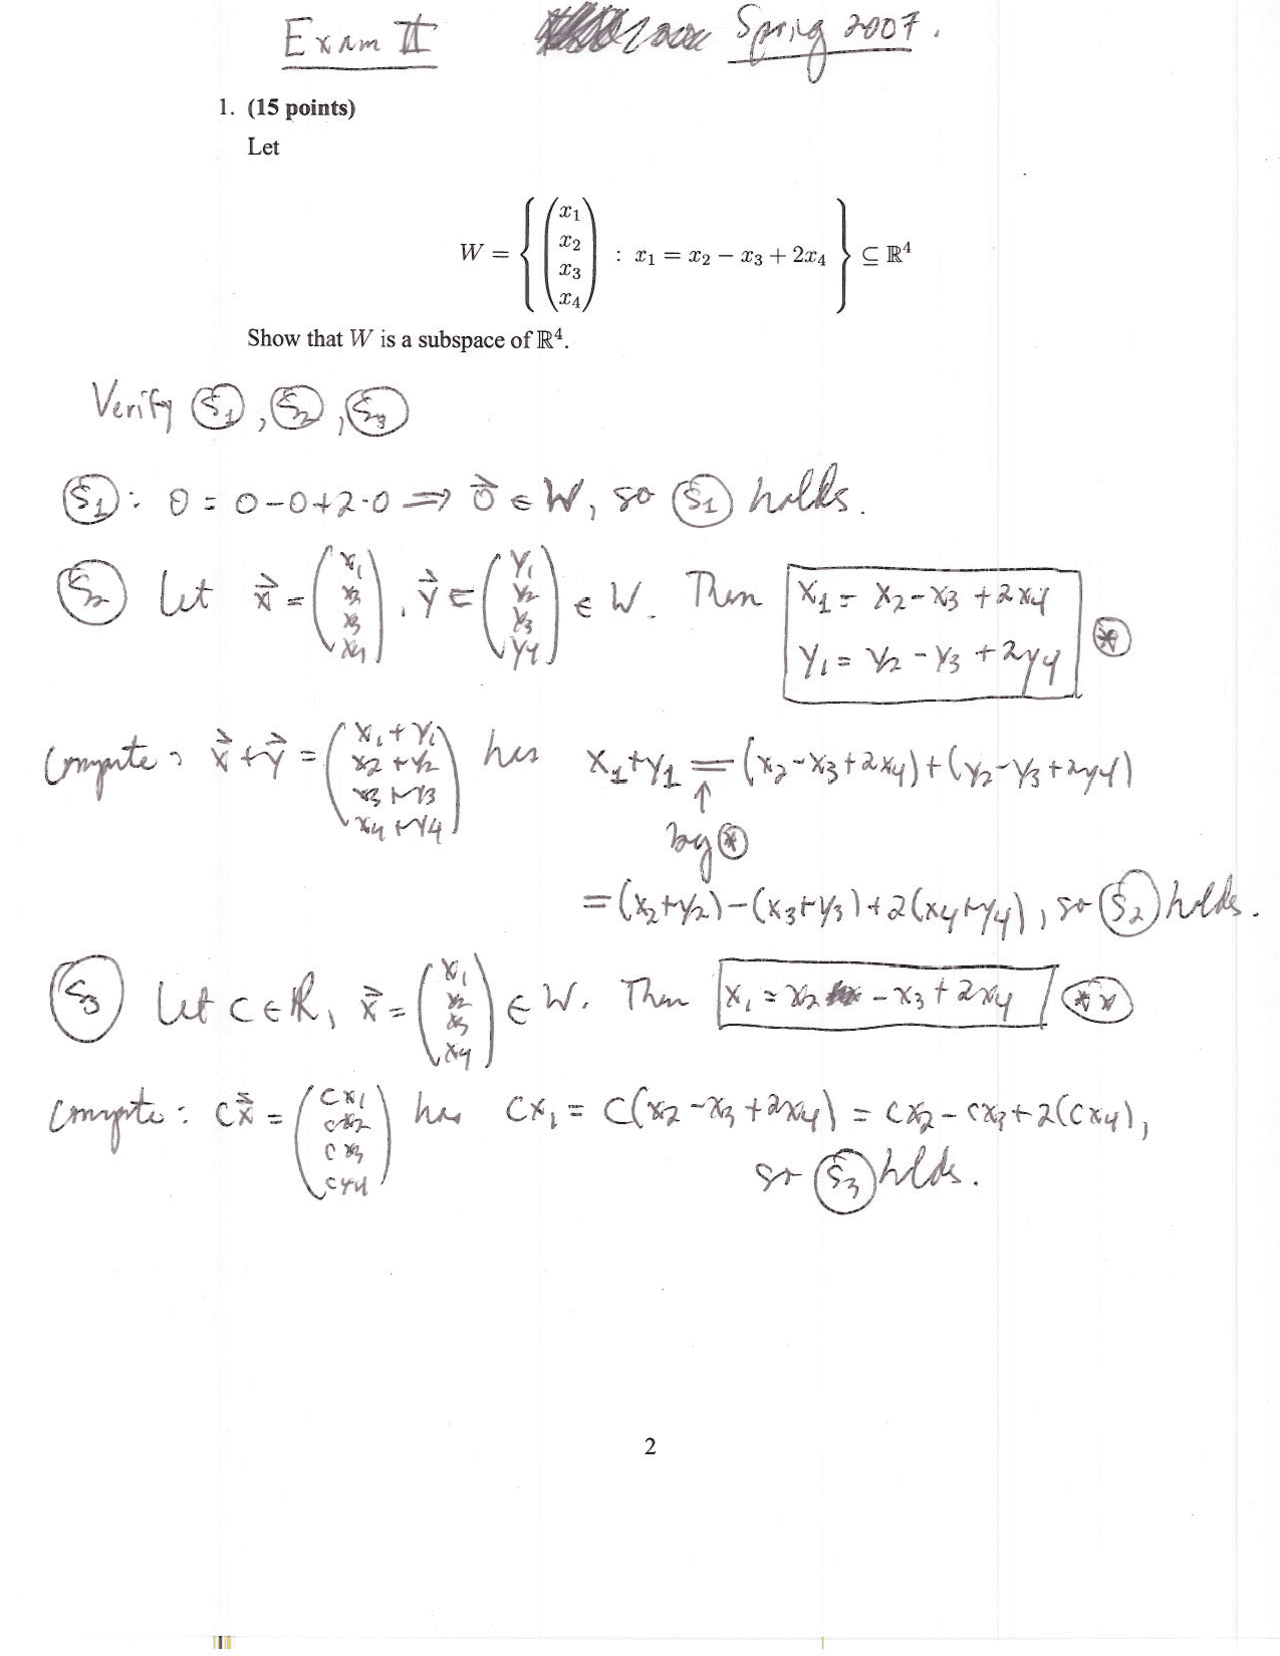 Exam II Spring 2007.
1. (15 points)
Let
W = { (x1 x2 x3 x4) : x1 = x2 − x3 + 2x4 } ⊆ ℝ⁴
Show that W is a subspace of ℝ⁴.
Verify S1, S2, S3
S1: 0 = 0-0+2·0 ⟹ 0⃗ ∈ W, so S1 holds.
S2 Let x⃗ = (x1 x2 x3 x4), y⃗ = (y1 y2 y3 y4) ∈ W. Then x1 = x2 - x3 + 2x4
y1 = y2 - y3 + 2y4 *
Compute: x⃗+y⃗ = (x1+y1 x2+y2 x3+y3 x4+y4) has x1+y1 = (x2-x3+2x4)+(y2-y3+2y4)
↑
by *
=(x2+y2)-(x3+y3)+2(x4+y4), so S2 holds.
S3 Let c ∈ ℝ, x⃗ = (x1 x2 x3 x4) ∈ W. Then x1 = x2 - x3 + 2x4 **
Compute: cx⃗ = (cx1 cx2 cx3 cx4) has cx1 = c(x2-x3+2x4) = cx2-cx3+2(cx4),
so S3 holds.
2